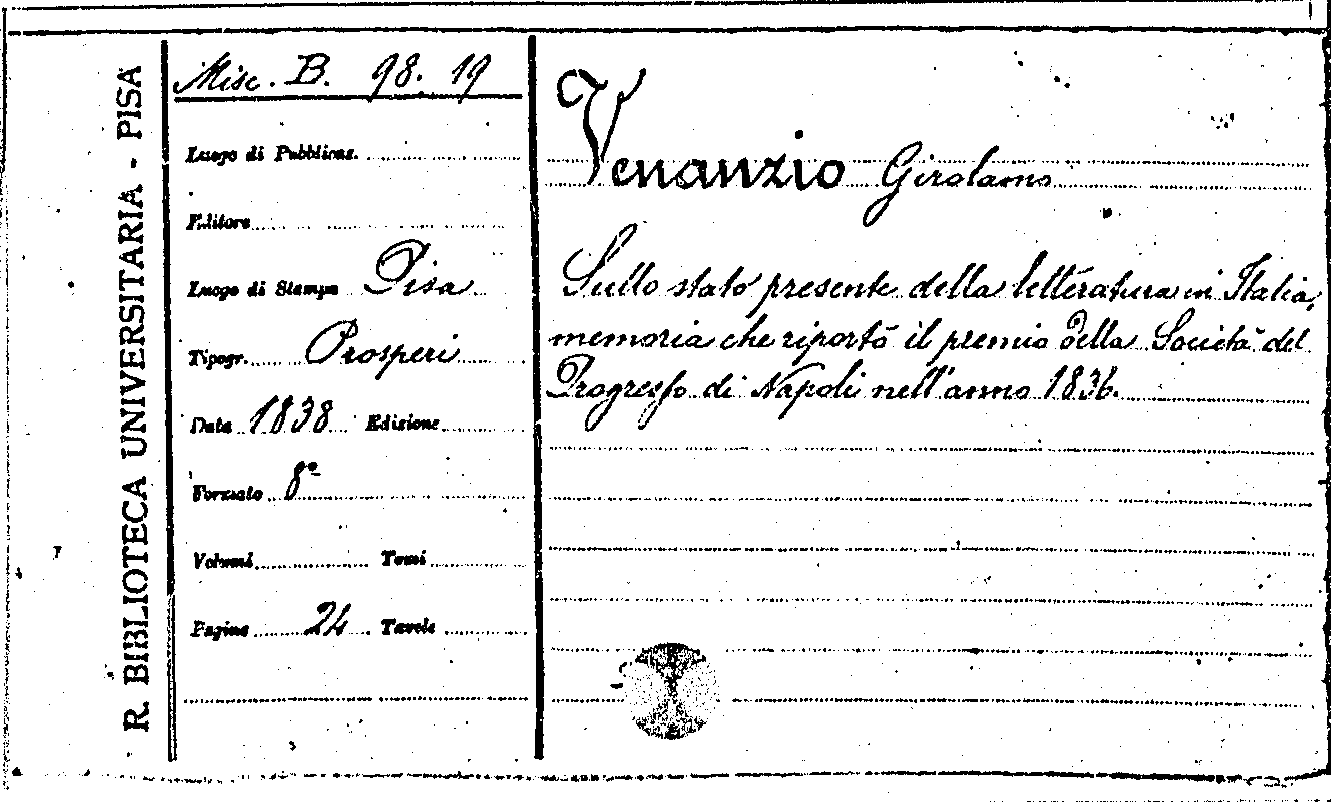 R. BIBLIOTECA UNIVERSITARIA - PISA
Misc. B. 98. 19
Luogo di Pubblicaz.
Editore
Luogo di Stampa Pisa
Tipogr. Prosperi
Data 1838 Edizione
Formato 8°
Volumi Tomi
Pagine 24 Tavole
Venanzio Girolamo
Sullo stato presente della letteratura in Italia,
memoria che riportò il premio della Società del
Progresso di Napoli nell'anno 1836.